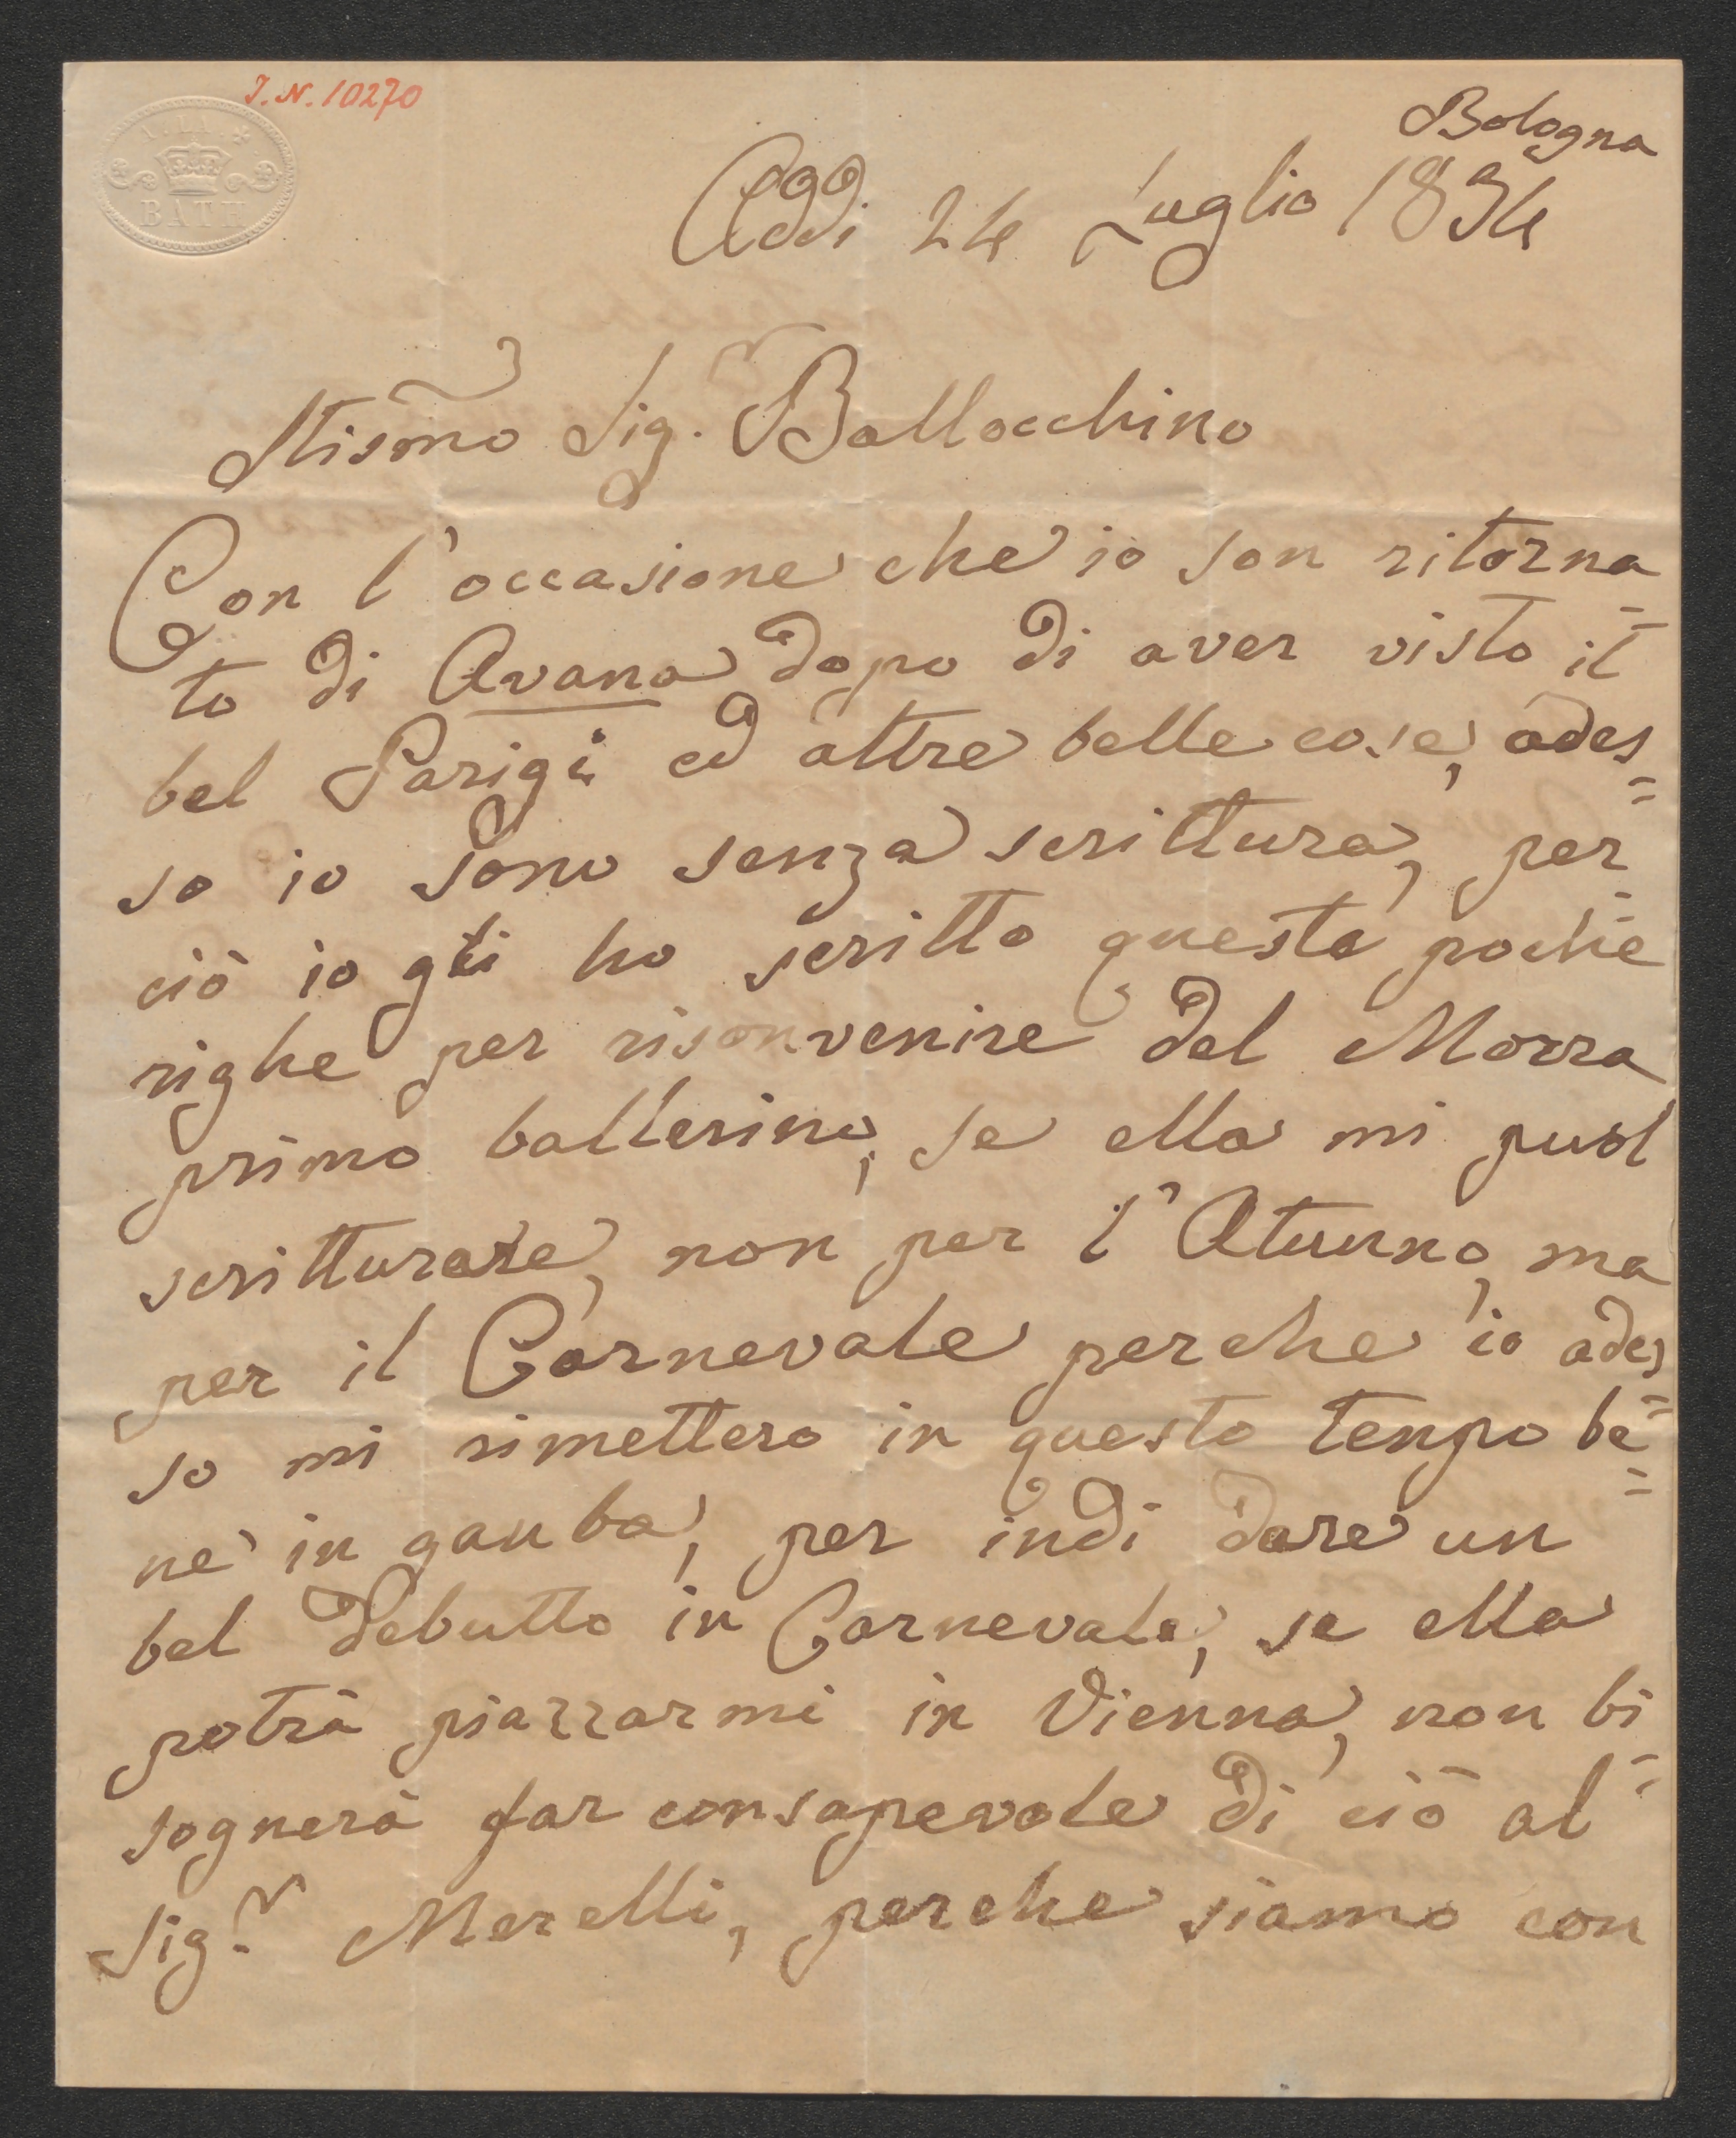 J. N. 10270
BATH
Bologna
Addi 24 Luglio 1834
Stismo Sig. Ballocchino
Con l'occasione che io son ritorna=
to di Avana dopo di aver visto il
bel Parigi ed altre belle cose, ades=
so io sono senza scrittura, per=
ciò io gli ho scritto queste poche
righe per risonvenire del Morra
primo ballerino, se ella mi puol
scritturare, non per l'Atunno, ma
per il Carnevale perche io ades=
so mi rimettero in questo tenpo be=
ne in ganba, per indi dare un
bel debutto in Carnevale, se ella
potrà piazzarmi in Vienna, non bi=
sognerà far consapevole di ciò al
Sig.r Merelli, perche siamo con